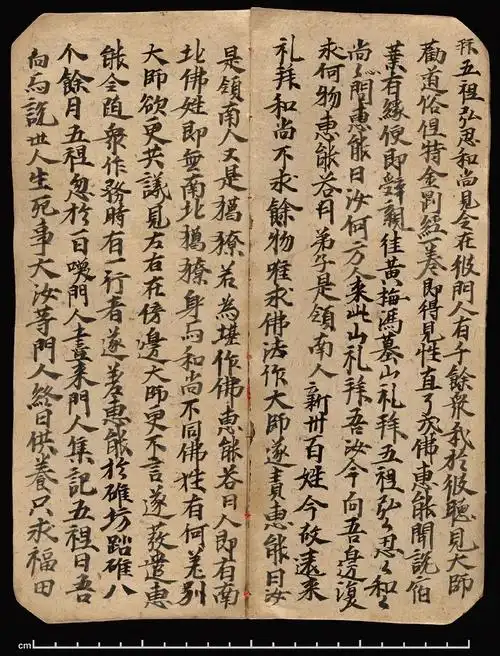 拜五祖弘忍和尚見今在彼門人有千餘衆我於彼聽見大師
勸道俗但持金剛經一卷即得見性直了成佛惠能聞說宿
業有緣便即辭親往黃梅馮墓山礼拜五祖弘〻忍〻和〻
尚〻問惠能曰汝何方人來此山礼拜吾汝今向吾身邊復
求何物惠能答曰弟子是領南人新州百姓今故遠來
礼拜和尚不求餘物唯求佛法作大師遂責惠能曰汝
是領南人又是獦獠若為堪作佛惠能答曰人即有南
北佛姓即無南北獦獠身与和尚不同佛姓有何差別
大師欲更共議見左右在傍邊大師更不言遂發遣惠
能令隨衆作務時有一行者遂差惠能於碓坊踏碓八
个餘月五祖忽於一日喚門人盡來門人集記五祖曰吾
向与說世人生死事大汝等門人終日供養只求福田
cm